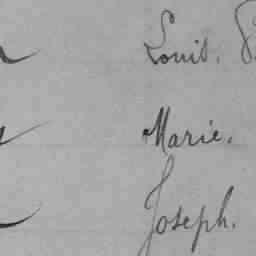 Louis.
Marie.
Joseph.